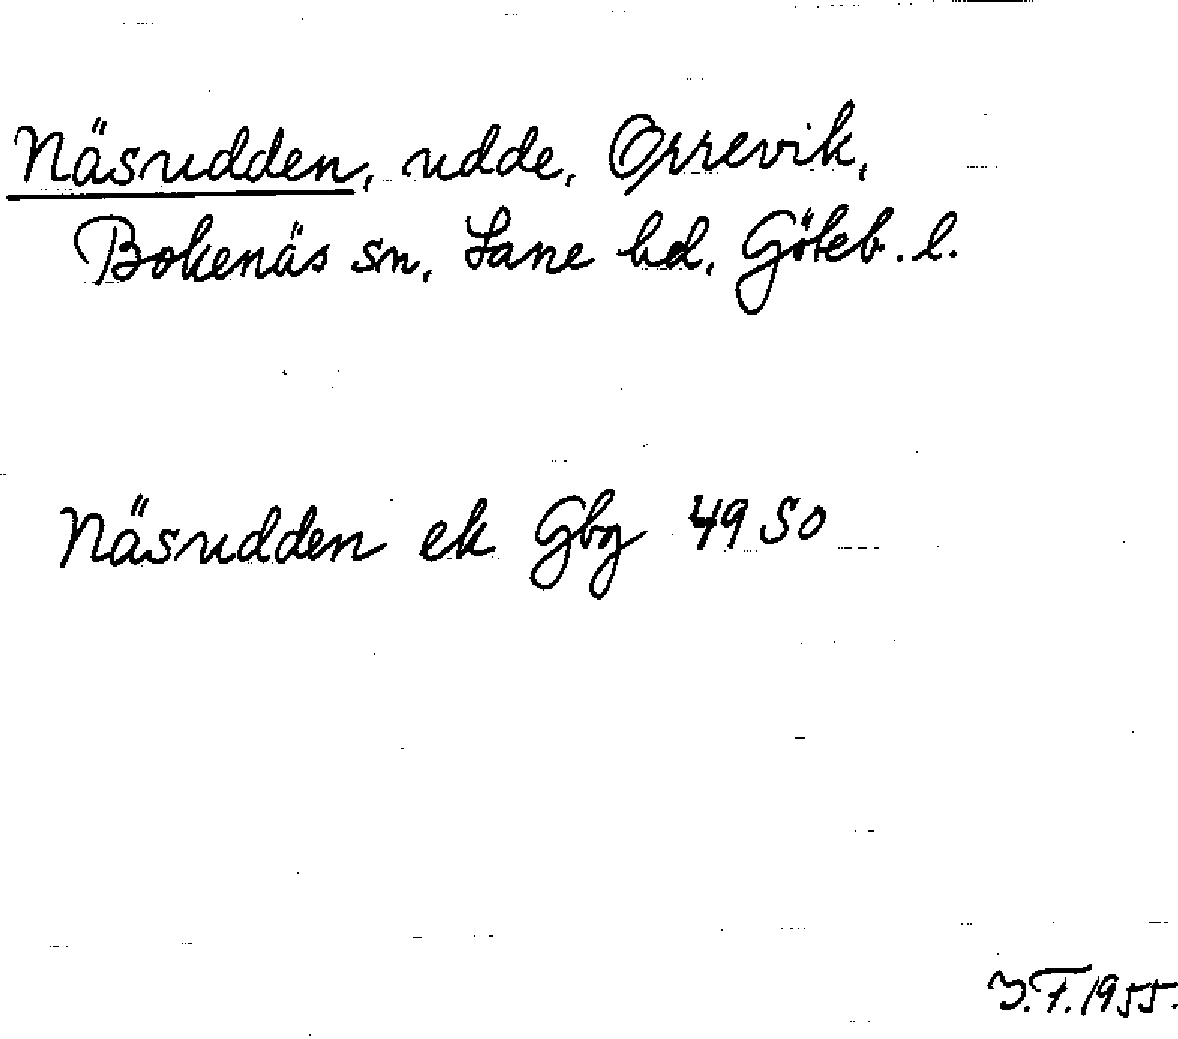 Näsudden, udde, Orrevik,
Bokenäs sn, Lane hd, Göteb. l.
Näsudden ek Gbg 49 SO
J.F. 1955.